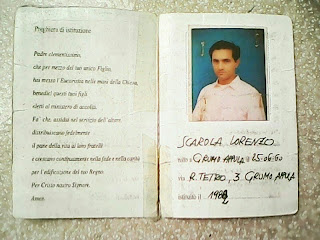 Preghiera di istituzione
Padre clementissimo,
che per mezzo del tuo unico Figlio,
hai messo l'Eucaristia nelle mani della Chiesa,
benedici questi tuoi figli
eletti al ministero di accoliti.
Fa' che, assidui nel servizio dell'altare
distribuiscano fedelmente
il pane della vita ai loro fratelli
e crescano continuamente nella fede e nella carità
per l'edificazione del tuo Regno.
Per Cristo nostro Signore.
Amen
SCAROLA LORENZO
nato a GRUMO APPULA il 25-06-60
via R. TETRO, 3 GRUMO APPULA
istituito il